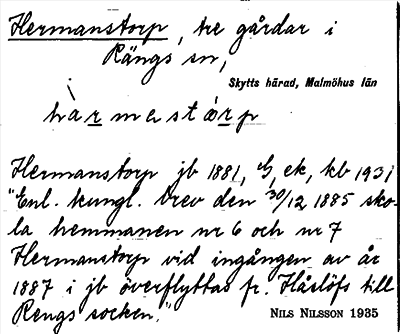 Hermanstorp, tre gårdar i
Rängs sn,
Skytts härad, Malmöhus län
hàrmestórp
Hermanstorp jb 1881, G, ek, kb 1931
"Enl. kungl. brev den 30/12 1885 sko-
la hemmanen nr 6 och nr 7
Hermanstorp vid ingången av år
1887 i jb överflyttas fr. Håslöfs till
Rengs socken."
NILS NILSSON 1935